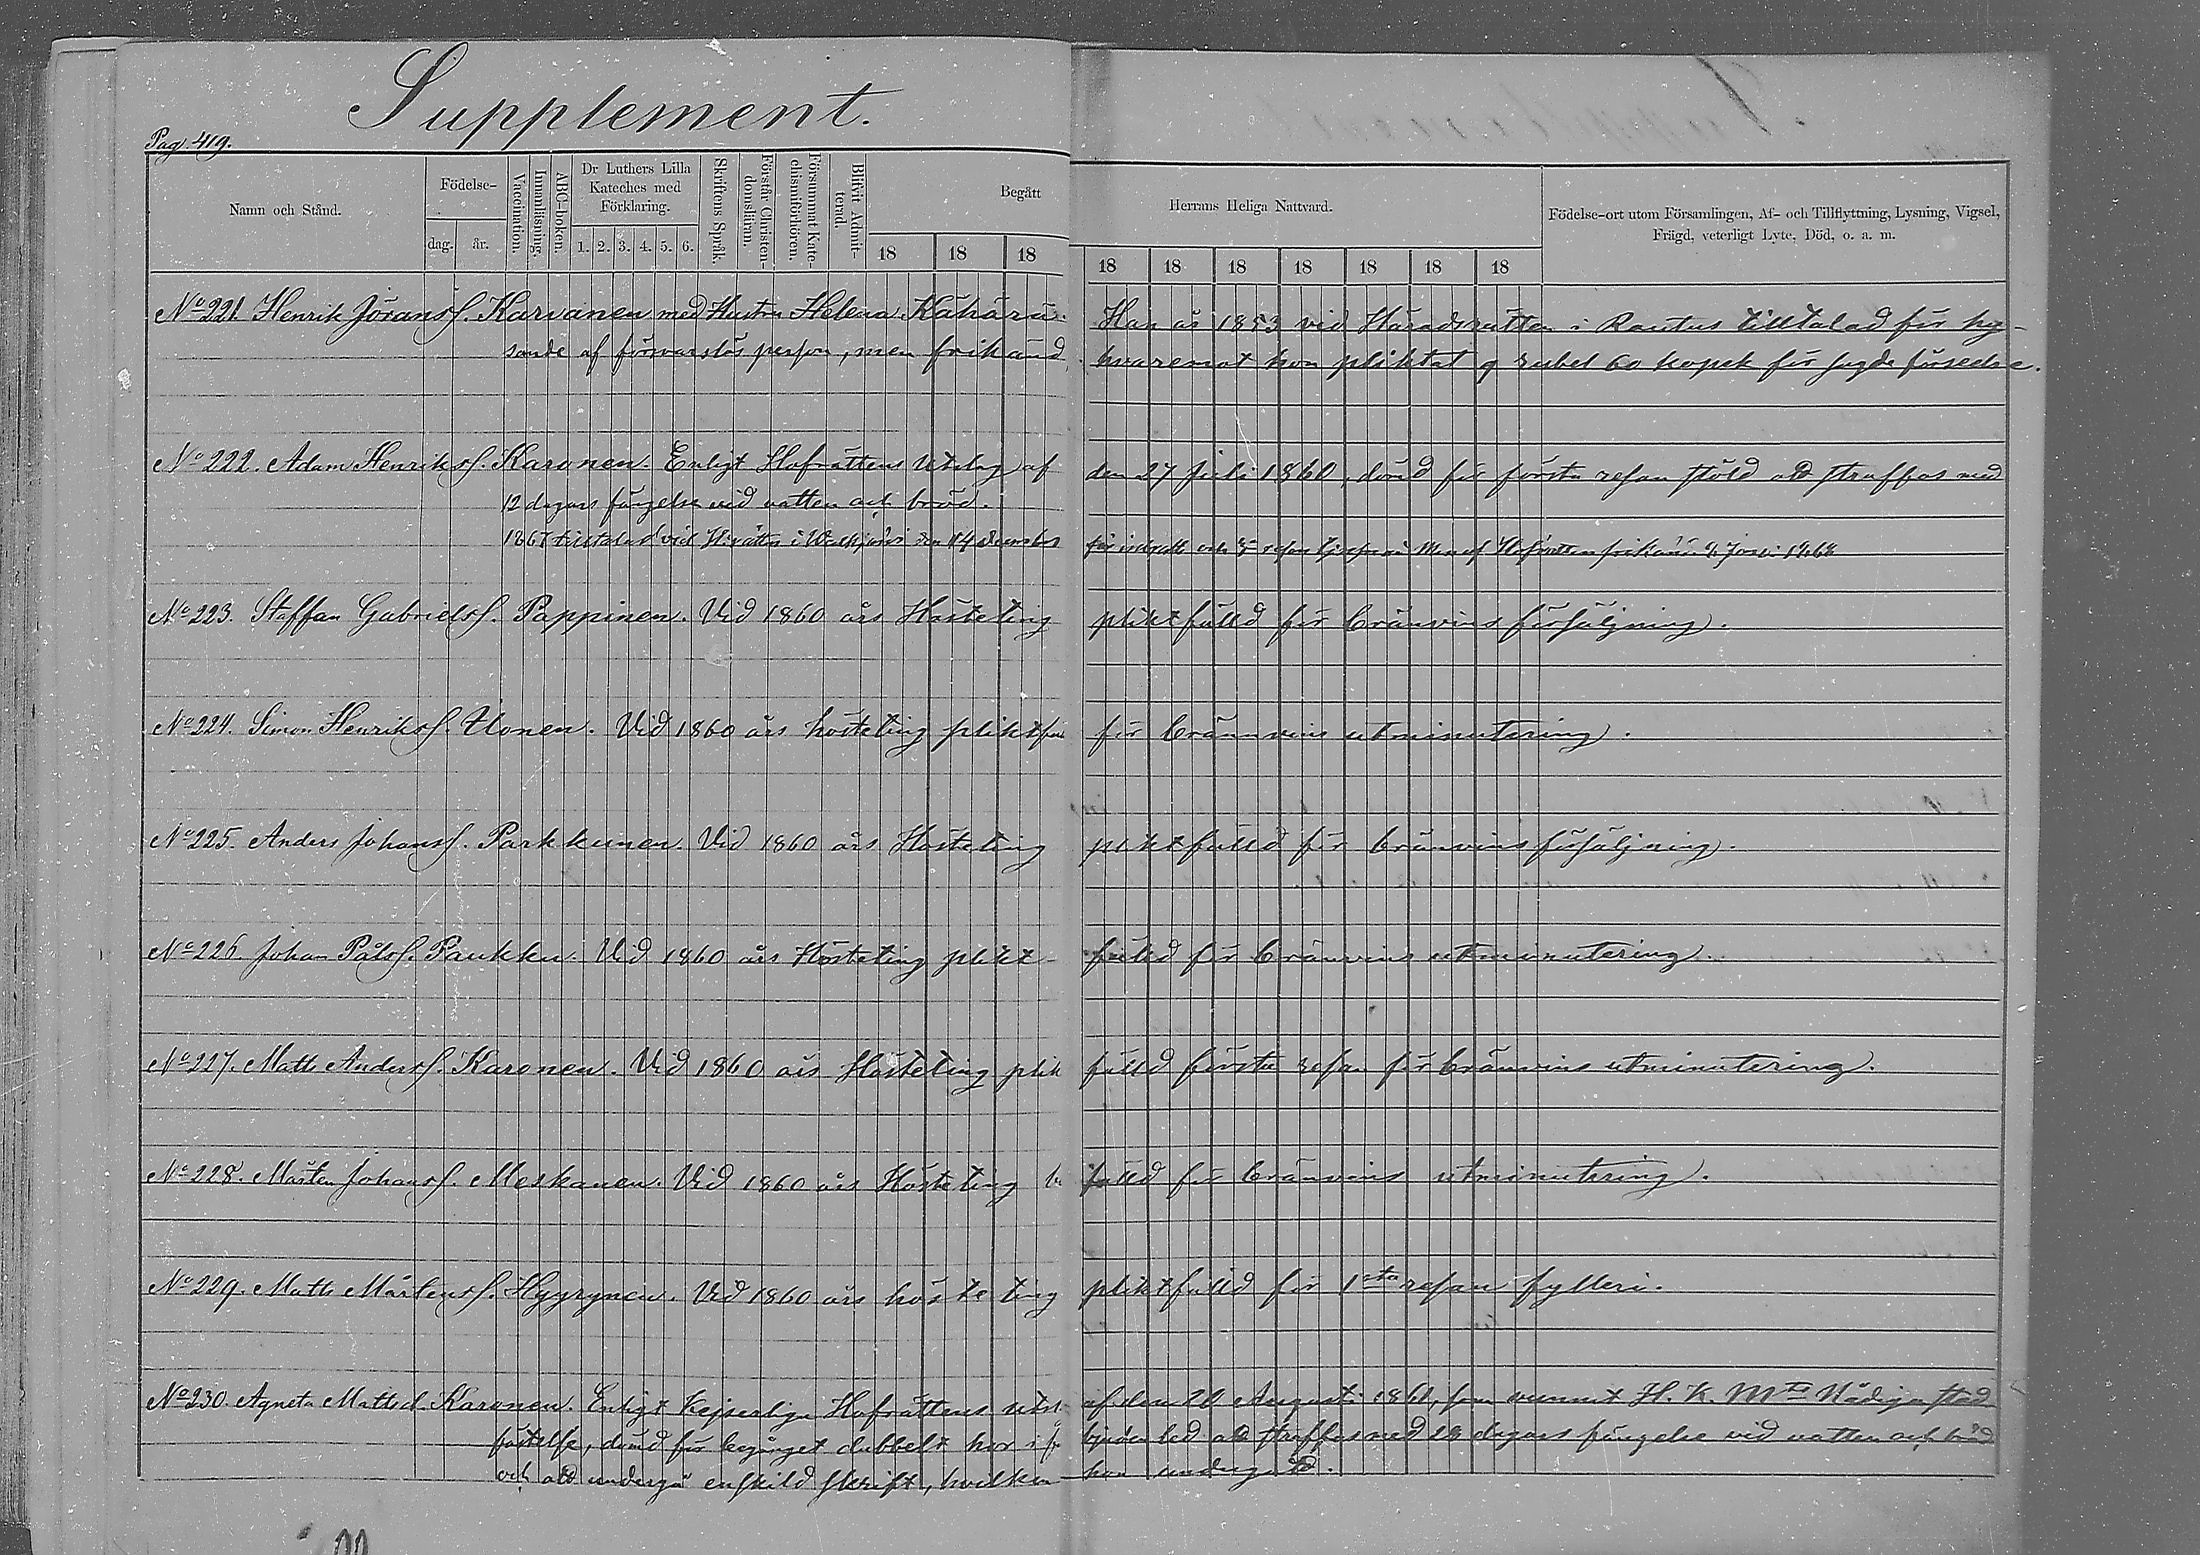 Supplement.
Pag. 419.
Namn och Stånd.
Födelse-
dag.
år.
Vaccination.
Innanläsning.
ABC-boken.
Dr Luthers Lilla
Kateches med
Förklaring.
1. 2. 3. 4. 5. 6.
Skriftens Språk.
Förstår Christen-
domsläran.
Försummat Kate-
chismiförhören.
Blifvit Admit-
terad.
Begått
18 18 18
Herrans Heliga Nattvard.
18 18 18 18 18 18 18
Födelse-ort utom Församlingen, Af- och Tillflyttning, Lysning, Vigsel,
Frägd, veterligt Lyte, Död, o. a. m.
No 221. Henrik Jöranss. Karvanen med Hustru Helena Kähärä. Han är 1853 vid Häradsrätten i Rautus tilltalad för hy-
sande af försvarslös person, men frikänd, hvaremot hon pliktat 9 rubel 60 kopek för sagde förseelse.
No 222. Adam Henrikss. Karonen. Enligt Hofrättens Utslag af den 27 Juli 1860, dömd för första resan stöld att straffas med
12 dagars fängelse vid vatten och bröd.
1867 tilltalad vid H.rätten i den 14 December för och resan Men af Hofrätten frikänd 1868
No 223. Staffan Gabrielss. Pappinen. Vid 1860 års Hösteting pliktfälld för bränvins försäljning.
No 224. Simon Henrikss. Uonen. Vid 1860 års hösteting pliktfäl för brännvins utminutering.
No 225. Anders Johanss. Parkkunen. Vid 1860 års Hösteting pliktfälld för bränvins försäljning.
No 226. Johan Pålss. Paukku. Vid 1860 års Hösteting plikt- fälld för bränvins utminutering.
No 227. Matts Anderss. Karonen. Vid 1860 års Hösteting plik fälld första resan för bränvins utminutering.
No 228. Mårten Johanss. Meskanen. Vid 1860 års Hösteting fälld för bränvins utminutering.
No 229. Matts Mårtenss. Hyyrynen. Vid 1860 års hösteting pliktfälld för 1sta resan fylleri.
No 230. Agneta Mattsd. Karonen. Enligt Kejserliga Hofrättens utsl. af den 20 Augusti 1861, som vunnit H. K. Mts Nådiga stad
fästelse, dömd för begånget dubbelt hor i att straffas med 28 dagars fängelse vid vatten och bröd
och att undergå enskild skrift, hvilken hon undergått.